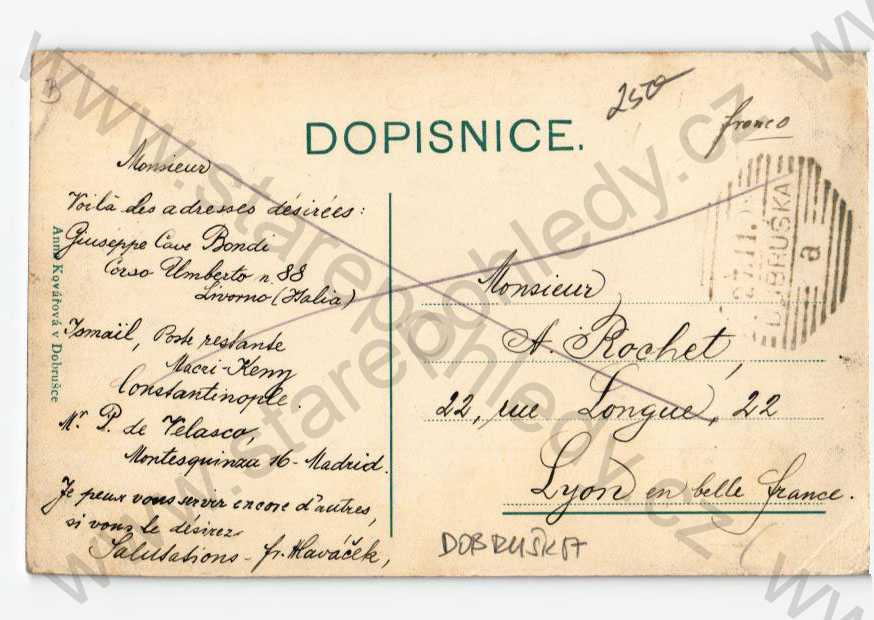 DOPISNICE.
250
franco
Monsieur
Voilà des adresses désirées:
Giuseppe Cave Bondi
Corso Umberto n. 88
Livorno (Italia)
Ismaïl, Poste restante
Macri-Keny
Constantinople.
Mr. P. de Velasco,
Montesquinza 16 - Madrid.
Je peux vous servir encore d'autres,
si vous le désirez
Salutations - fr. Hlaváček,
Anna Kovářová v Dobrušce
27.11.
DOBRUŠKA
a
Monsieur
A. Rochet,
22, rue Longue, 22
Lyon en belle france.
DOBRUŠKA
www.starepohledy.cz
www.starepohledy.cz